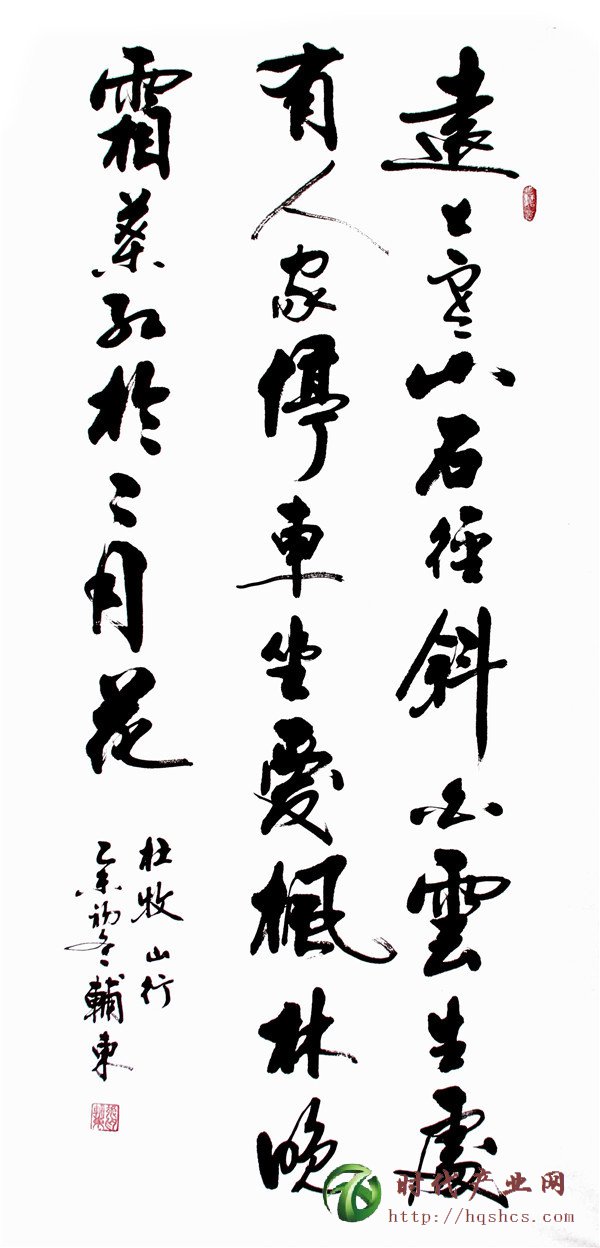 遠上寒山石徑斜白雲生處
有人家停車坐愛楓林晚
霜葉紅於二月花
杜牧山行
乙未初冬輔東
时代产业网
http://hqshcs.com